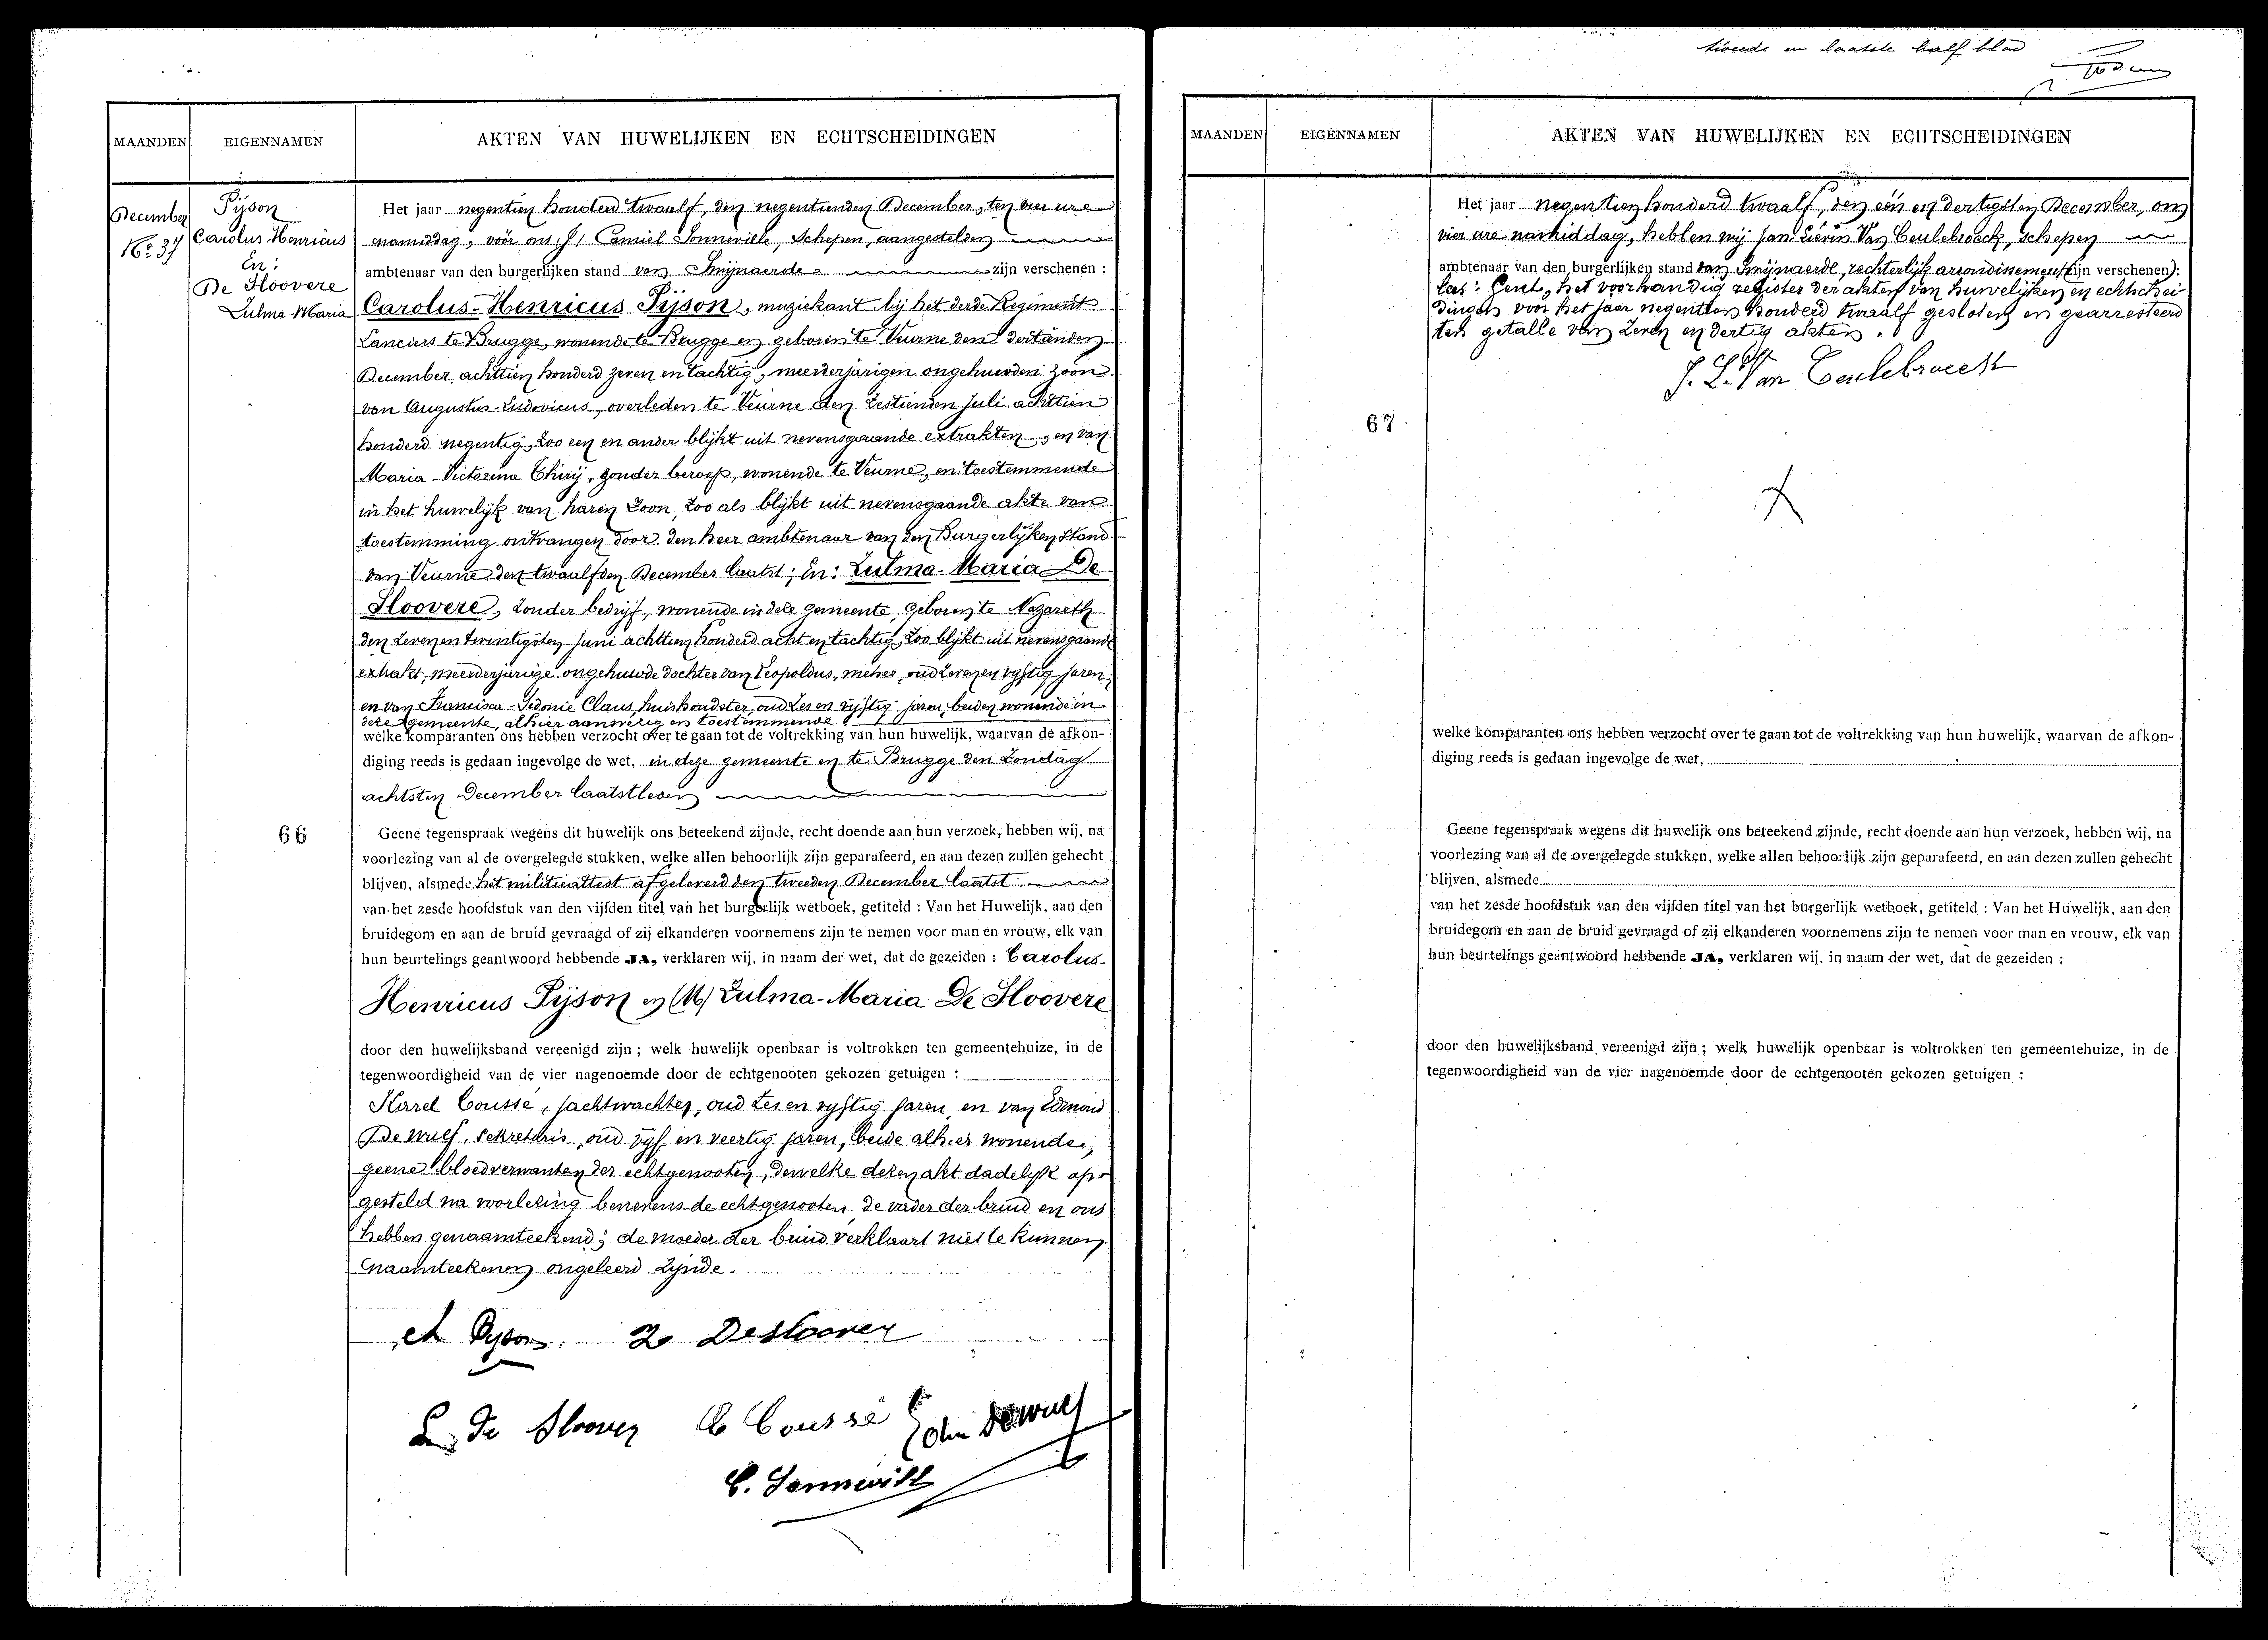 MAANDEN
EIGENNAMEN
AKTEN VAN HUWELIJKEN EN ECHTSCHEIDINGEN
December
No 37
Pijson
Carolus Henricus
En:
De Sloovere
Zulma Maria
Het jaar negentien honderd twaalf, den negentienden December, ten vier ure
namiddag, vóór ons, Camiel Sonneville, Schepen, aangestelden
ambtenaar van den burgerlijken stand van Swijnaerde zijn verschenen :
Carolus-Henricus Pijson, muziekant bij het derde Regiment
Lanciers te Brugge, wonende te Brugge en geboren te Veurne den dertienden
December achttien honderd zeven en tachtig, meerderjarigen ongehuwden zoon
van Augustus-Ludovicus, overleden te Veurne den zestienden Juli achttien
honderd negentig, zoo een en ander blijkt uit nevensgaande extrakten, en van
Maria-Victorina Thirij, zonder beroep, wonende te Veurne, en toestemmende
in het huwelijk van haren zoon, zoo als blijkt uit nevensgaande akte van
toestemming ontvangen door den heer ambtenaar van den Burgerlijken Stand
van Veurne den twaalfden December laatst; En: Zulma-Maria De
Sloovere, zonder bedrijf, wonende in deze gemeente, geboren te Nazareth
den zeven en twintigsten Juni achttien honderd acht en tachtig, zoo blijkt uit nevensgaande
extrakt, meerderjarige ongehuwde dochter van Leopoldus, oud zeven en vijftig jaren,
en van Francisca-Sidonie Claus, huishoudster, oud zes en vijftig jaren, beiden wonende in
deze gemeente, alhier aanwezig en toestemmende
welke komparanten ons hebben verzocht over te gaan tot de voltrekking van hun huwelijk, waarvan de afkon-
diging reeds is gedaan ingevolge de wet, in deze gemeente en te Brugge den Zondag
achtsten December laatstleden
66
Geene tegenspraak wegens dit huwelijk ons beteekend zijnde, recht doende aan hun verzoek, hebben wij, na
voorlezing van al de overgelegde stukken, welke allen behoorlijk zijn geparafeerd, en aan dezen zullen gehecht
blijven, alsmede het militieattest afgeleverd den tweeden December laatst
van het zesde hoofdstuk van den vijfden titel van het burgerlijk wetboek, getiteld : Van het Huwelijk, aan den
bruidegom en aan de bruid gevraagd of zij elkanderen voornemens zijn te nemen voor man en vrouw, elk van
hun beurtelings geantwoord hebbende JA, verklaren wij, in naam der wet, dat de gezeiden : Carolus-
Henricus Pijson en Zulma-Maria De Sloovere
door den huwelijksband vereenigd zijn ; welk huwelijk openbaar is voltrokken ten gemeentehuize, in de
tegenwoordigheid van de vier nagenoemde door de echtgenooten gekozen getuigen :
Karel Coussé, jachtwachter, oud zes en vijftig jaren, en van Edmond
De Wulf, sekretaris, oud vijf en veertig jaren, beide alhier wonende,
geene bloedverwanten der echtgenooten, dewelke dezen akt dadelijk op-
gesteld na voorlezing benevens de echtgenooten, de vader der bruid en ons
hebben genaamteekend; de moeder der bruid verklaart niet te kunnen
naamteekenen ongeleerd zijnde.
Pyson Z Desloover
L. De Sloover C Coussé Edm Dewulf
C. Sonneville
tweede en laatste half blad
MAANDEN
EIGENNAMEN
AKTEN VAN HUWELIJKEN EN ECHTSCHEIDINGEN
Het jaar negentien honderd twaalf, den een en dertigsten December, om
vier ure namiddag, hebben wij Jan Lievin Van Ceulebroeck, schepen
ambtenaar van den burgerlijken stand van Swijnaerde, rechterlijk arrondissement (zijn verschenen):
lees: Gent, het voorhandig register der akten van huwelijken en echtschei-
dingen voor het jaar negentien honderd twaalf gesloten en gearresteerd
ten getalle van zeven en dertig akten.
J. L. Van Ceulebroeck
67
welke komparanten ons hebben verzocht over te gaan tot de voltrekking van hun huwelijk, waarvan de afkon-
diging reeds is gedaan ingevolge de wet,
Geene tegenspraak wegens dit huwelijk ons beteekend zijnde, recht doende aan hun verzoek, hebben wij, na
voorlezing van al de overgelegde stukken, welke allen behoorlijk zijn geparafeerd, en aan dezen zullen gehecht
blijven, alsmede
van het zesde hoofdstuk van den vijfden titel van het burgerlijk wetboek, getiteld : Van het Huwelijk, aan den
bruidegom en aan de bruid gevraagd of zij elkanderen voornemens zijn te nemen voor man en vrouw, elk van
hun beurtelings geantwoord hebbende JA, verklaren wij, in naam der wet, dat de gezeiden :
door den huwelijksband vereenigd zijn ; welk huwelijk openbaar is voltrokken ten gemeentehuize, in de
tegenwoordigheid van de vier nagenoemde door de echtgenooten gekozen getuigen :